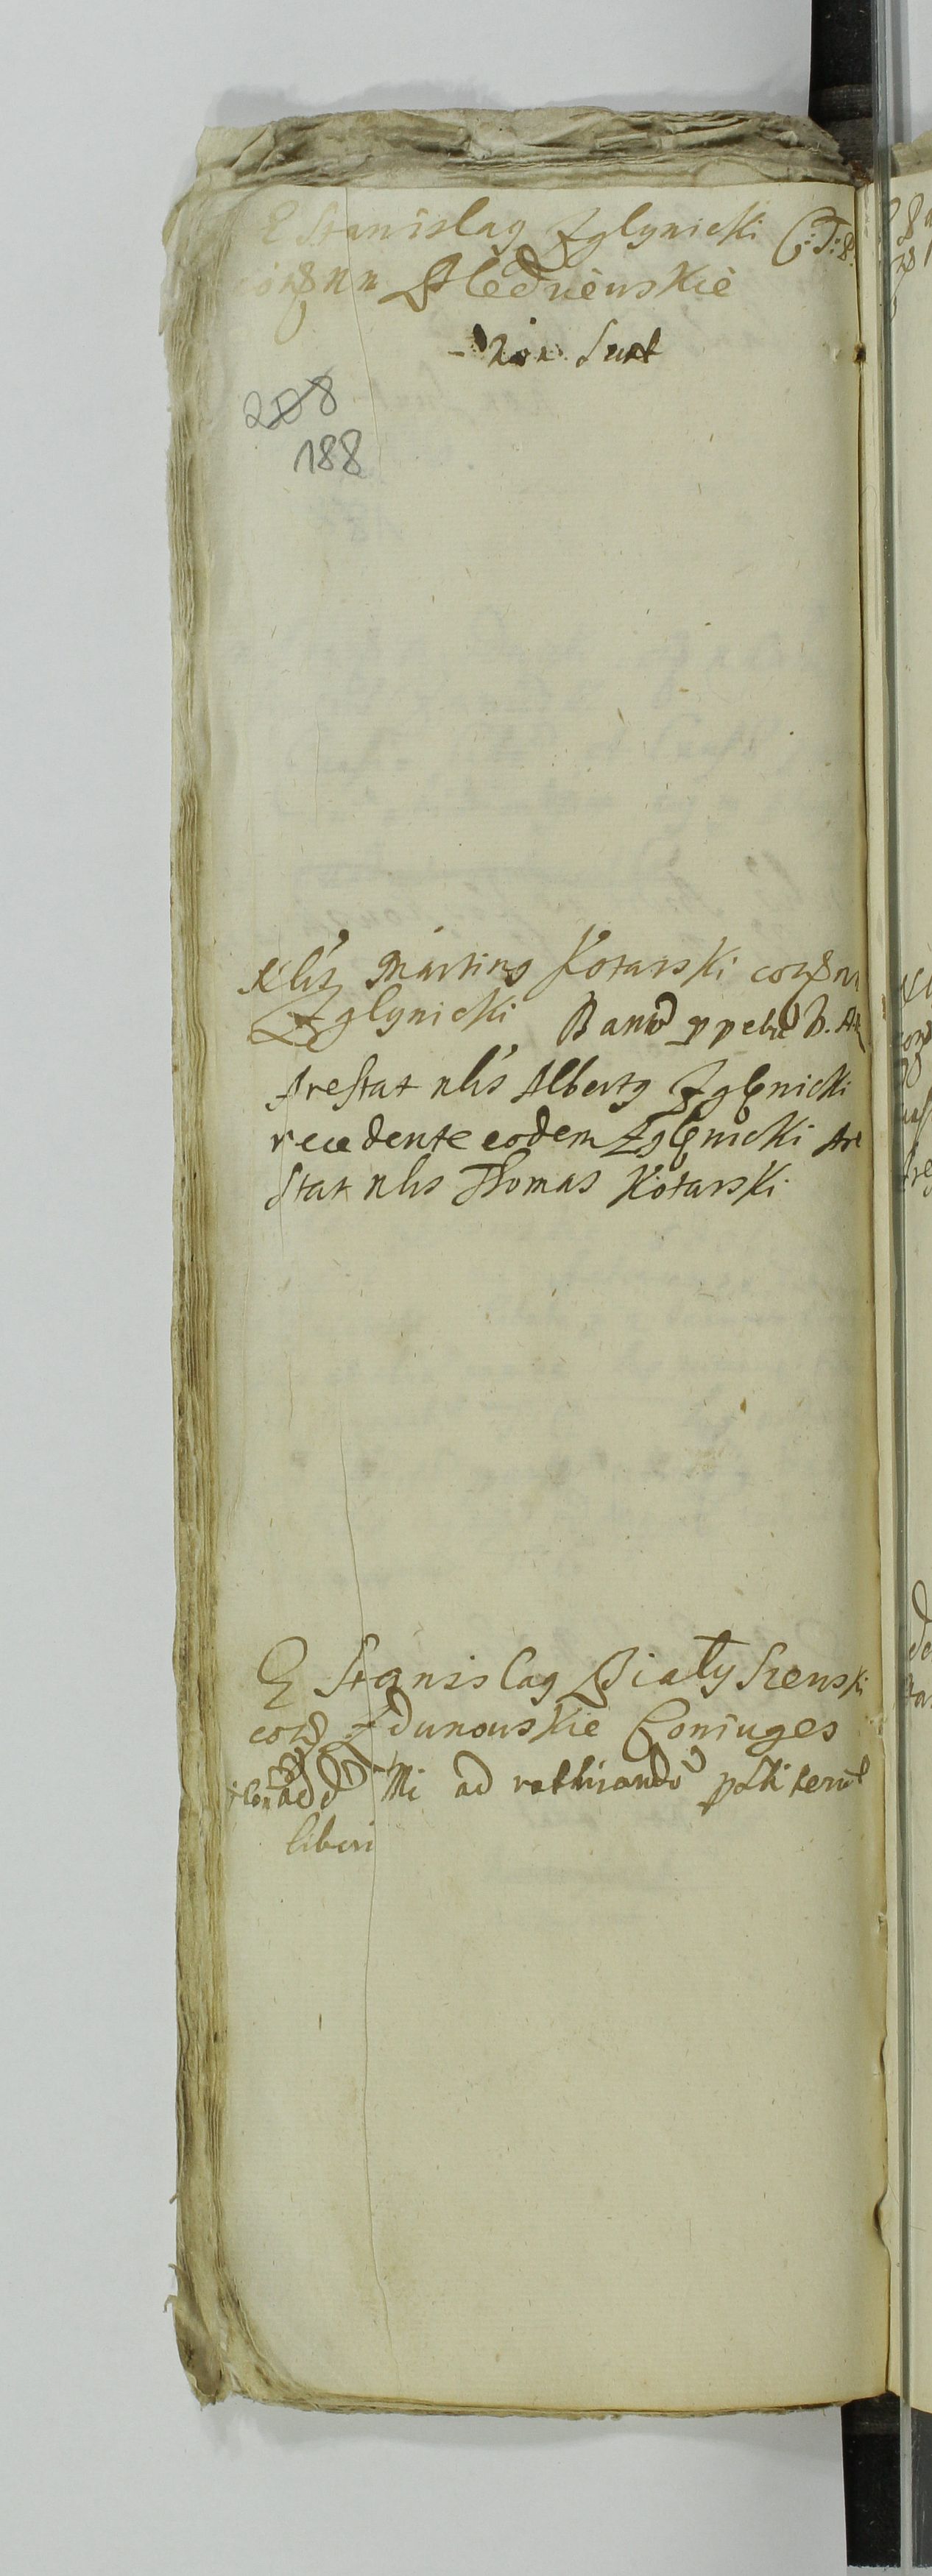 E Stanislaq Zglynicki (:T:8.
nn Sledzienskie
- Non Sunt
208
188
Nlis Martinq Kotarski
Zglynicki Banit
Arestat nlis Albertq Zglynicki
recedente eodem Zglynicki Are
stat nlis Thomas Kotarski
E Stanislaq Białyszenski
Zdunowskie Coniuges
add Mi ad
liberi